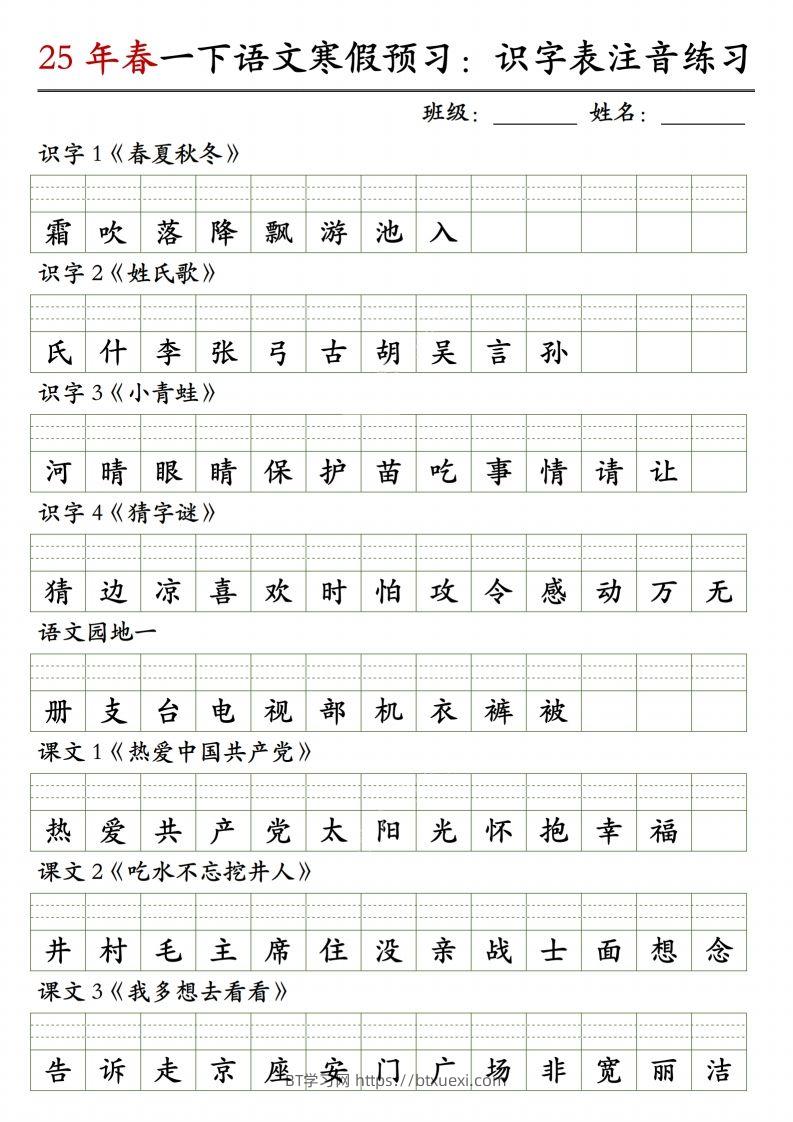 25 年春一下语文寒假预习：识字表注音练习
班级：________ 姓名：________
识字 1《春夏秋冬》
霜 吹 落 降 飘 游 池 入
识字 2《姓氏歌》
氏 什 李 张 弓 古 胡 吴 言 孙
识字 3《小青蛙》
河 晴 眼 睛 保 护 苗 吃 事 情 请 让
识字 4《猜字谜》
猜 边 凉 喜 欢 时 怕 攻 令 感 动 万 无
语文园地一
册 支 台 电 视 部 机 衣 裤 被
课文 1《热爱中国共产党》
热 爱 共 产 党 太 阳 光 怀 抱 幸 福
课文 2《吃水不忘挖井人》
井 村 毛 主 席 住 没 亲 战 士 面 想 念
课文 3《我多想去看看》
告 诉 走 京 座 安 门 广 场 非 宽 丽 洁
BT学习网 https://btxuexi.com